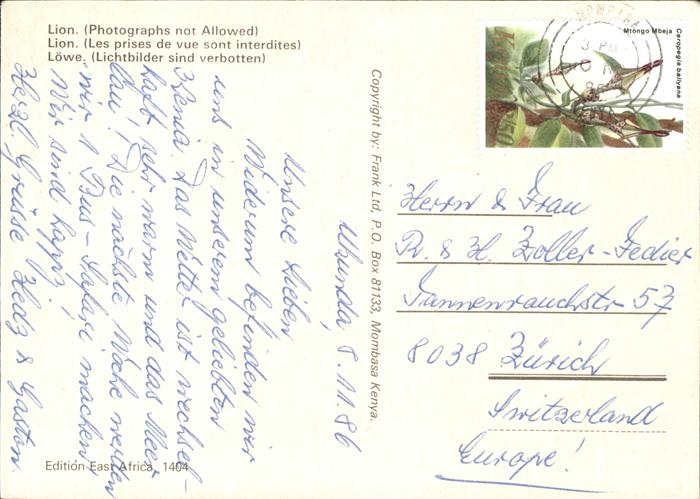 Lion. (Photographs not Allowed)
Lion. (Les prises de vue sont interdites)
Löwe. (Lichtbilder sind verbotten)
Ukunda, 8.11.86
Unsere Lieben
Widerum befinden wir
uns in unserem geliebten
Kenia. Das Wetter ist wechsel-
haft sehr warm und das Meer
lau! Die nächste Woche werden
wir 1 Bus-Safari machen
Wir sind happy!
Herzl. Grüsse Hedy & Gaston.
Edition East Africa, 1404
Copyright by: Frank Ltd, P.O. Box 81133, Mombasa Kenya.
Mtongo Mbeja
Ceropegia ballyana
KENYA
MOMBASA
3 PM
Herrn & Frau
R. & H. Zoller-Fedier
Tannenrauchstr 57
8038 Zürich
Switzerland
Europe!